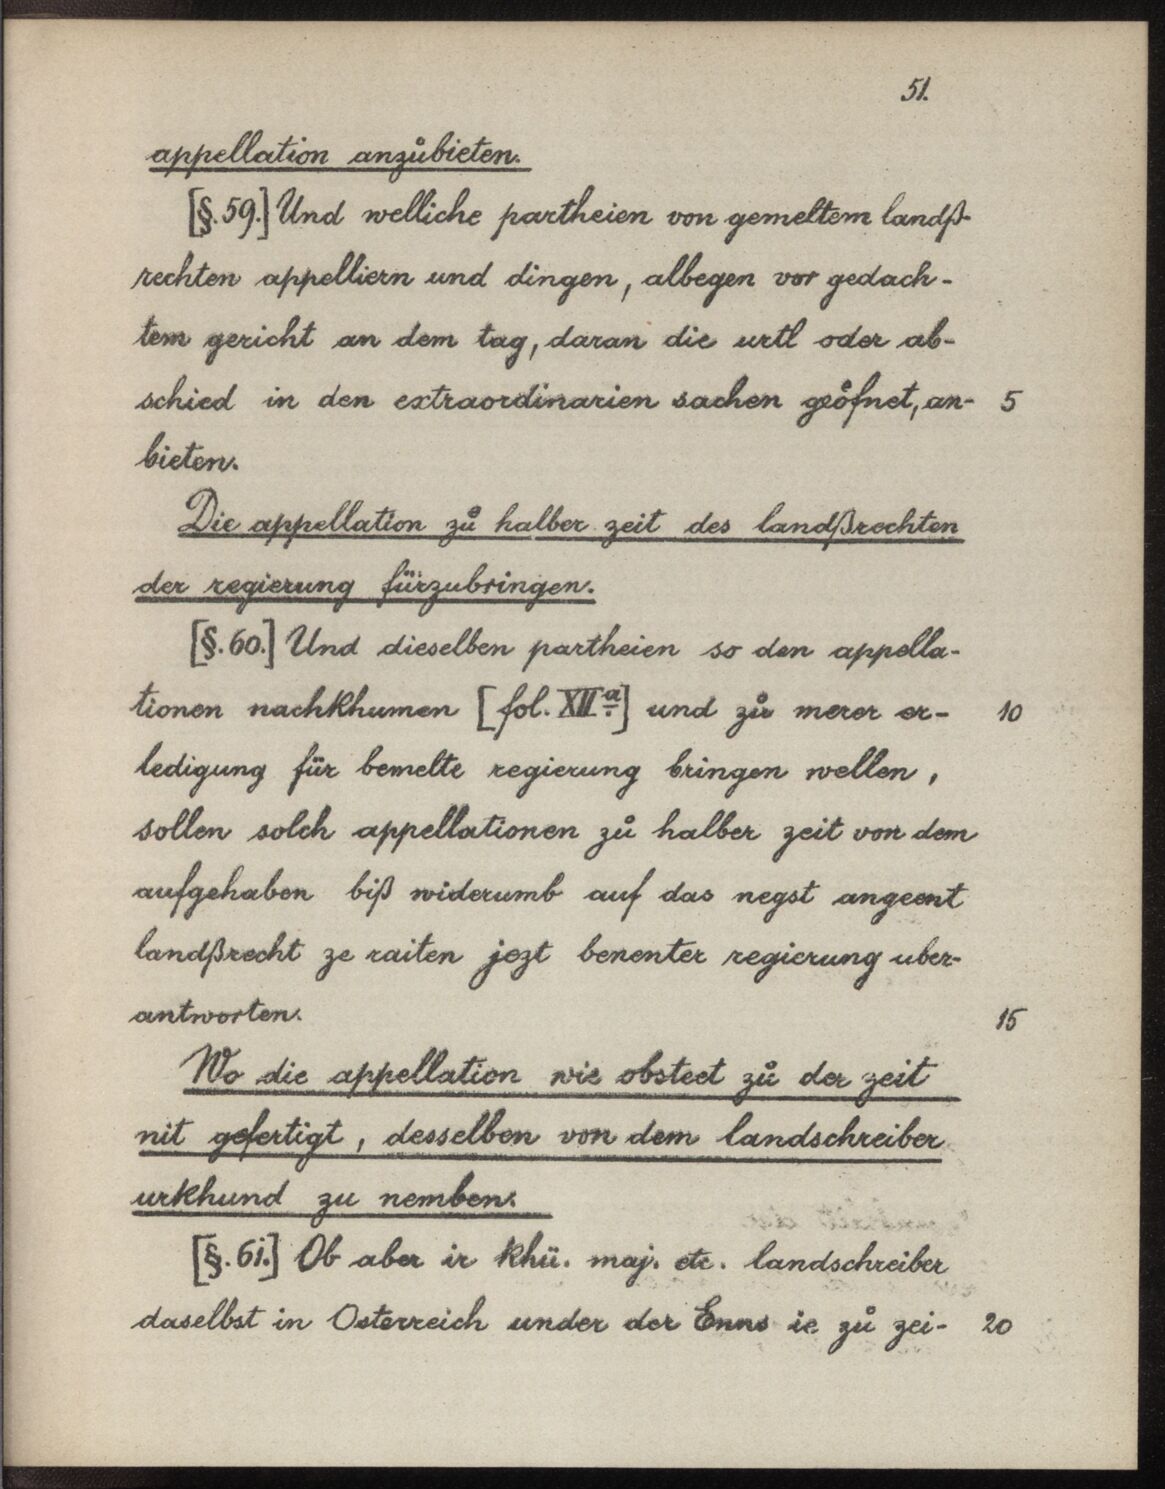 51.
appellation anzůbieten.
[§.59.] Und welliche partheien von gemeltem landß-
rechten appelliern und dingen, albegen vor gedach-
tem gericht an dem tag, daran die urtl oder ab-
schied in den extraordinarien sachen geöfnet, an- 5
bieten.
Die appellation zů halber zeit des landßrechten
der regierung fürzubringen.
[§.60.] Und dieselben partheien so den appella-
tionen nachkhumen [fol. XIIa] und zů merer er- 10
ledigung für bemelte regierung bringen wellen,
sollen solch appellationen zů halber zeit von dem
aufgehaben biß widerumb auf das negst angeent
landßrecht ze raiten jezt benenter regierung uber-
antworten. 15
Wo die appellation wie obsteet zů der zeit
nit gefertigt, desselben von dem landschreiber
urkhund zu nemben.
[§.61.] Ob aber ir khü. maj. etc. landschreiber
daselbst in Osterreich under der Enns ie zů zei- 20